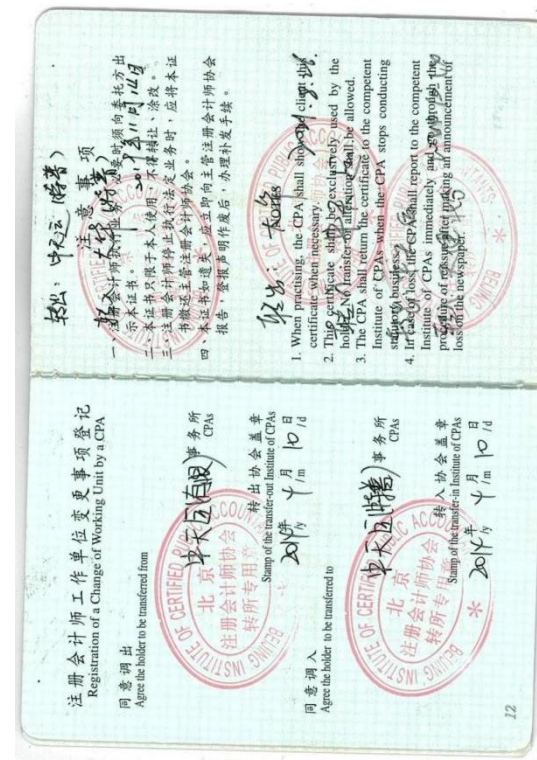 注册会计师工作单位变更事项登记
Registration of a Change of Working Unit by a CPA
同意调出
Agree the holder to be transferred from
事务所
CPAs
北京
注册会计师协会
转所专用章
BEIJING INSTITUTE OF CERTIFIED PUBLIC ACCOUNTANTS
转出协会盖章
Stamp of the transfer-out Institute of CPAs
2014年 4月 10日
/y /m /d
同意调入
Agree the holder to be transferred to
事务所
CPAs
北京
注册会计师协会
转所专用章
BEIJING INSTITUTE OF CERTIFIED PUBLIC ACCOUNTANTS
转入协会盖章
Stamp of the transfer-in Institute of CPAs
2014年 4月 10日
/y /m /d
12
转出:
注意事项
一、注册会计师执行业务,必要时须向委托方出
示本证书。
二、本证书只限于本人使用,不得转让、涂改。
三、注册会计师停止执行法定业务时,应将本证
书缴还主管注册会计师协会。
四、本证书如遗失,应立即向主管注册会计师协会
报告,登报声明作废后,办理补发手续。
Notes
1. When practising, the CPA shall show the client this
certificate when necessary.
2. This certificate shall be exclusively used by the
holder. No transfer or alteration shall be allowed.
3. The CPA shall return the certificate to the competent
Institute of CPAs when the CPA stops conducting
statutory business.
4. In case of loss, the CPA shall report to the competent
Institute of CPAs immediately and go through the
procedure of reissue after making an announcement of
loss on the newspaper.